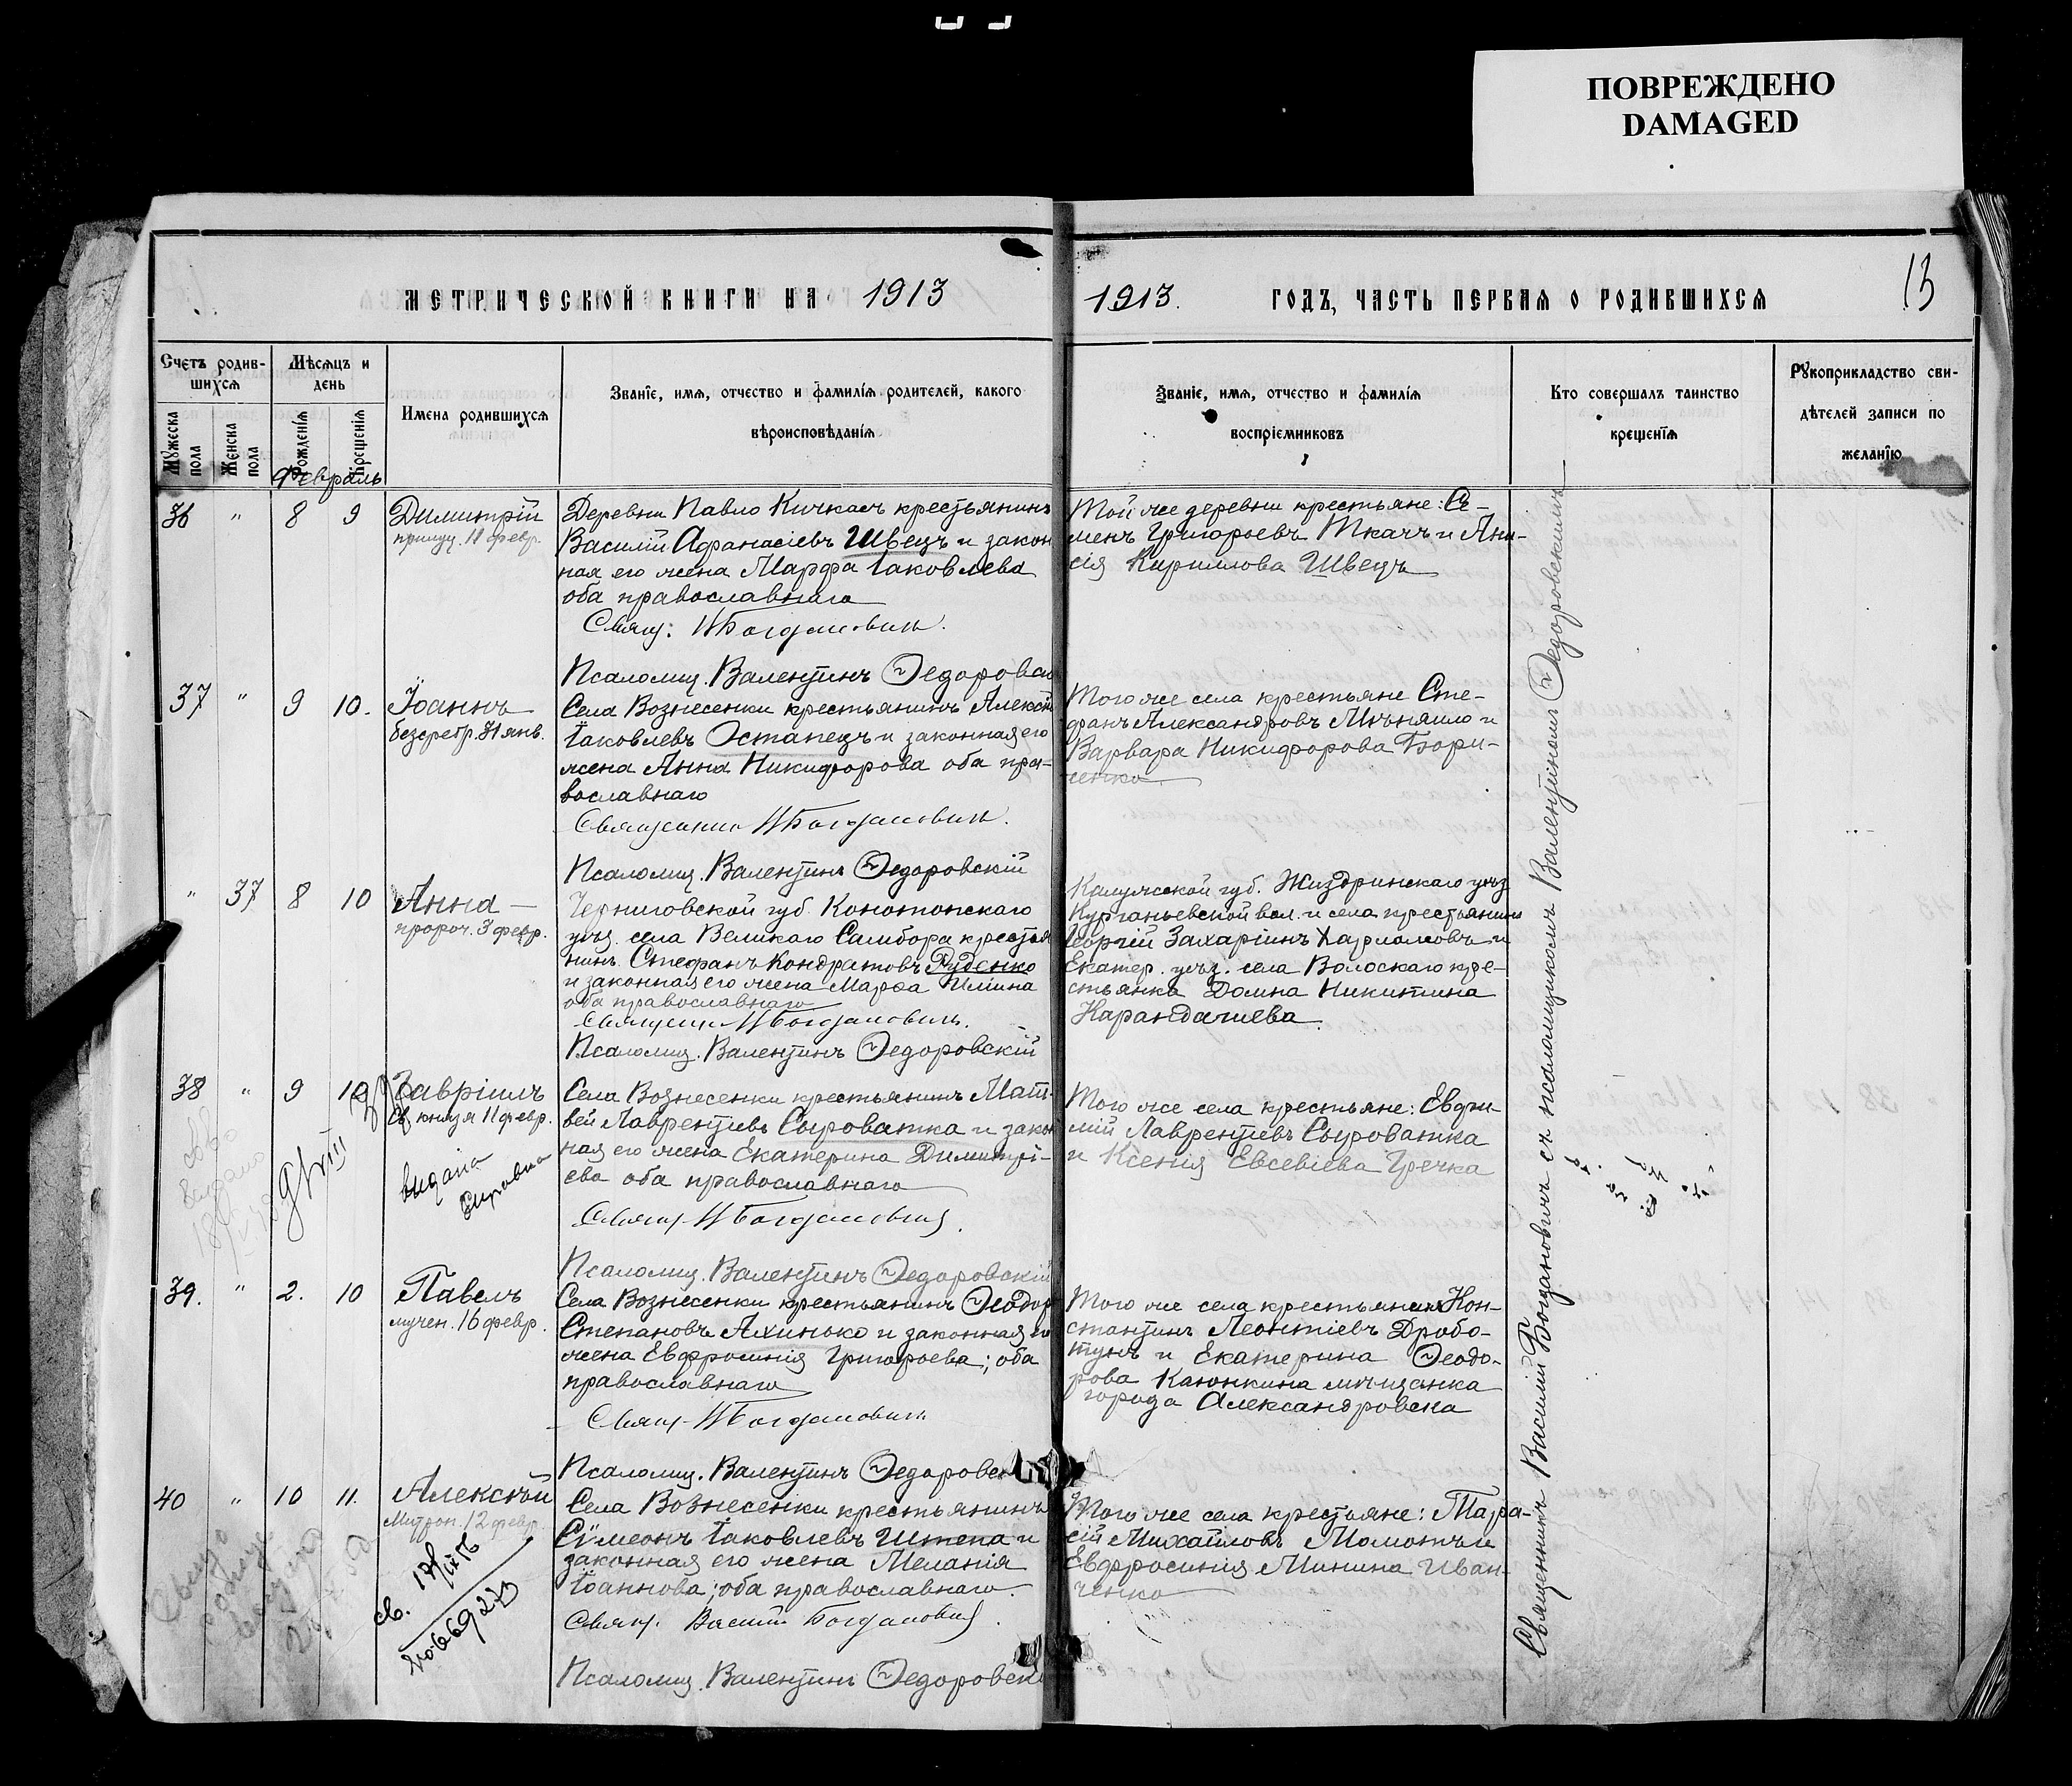 ПОВРЕЖДЕНО
DAMAGED
МЕТРИЧЕСКОЙ КНИГИ НА 1913
1913. ГОДЪ, ЧАСТЬ ПЕРВАЯ О РОДИВШИХСЯ
13
Счетъ родив-
шихся
Мужеска
пола
Женска
пола
Мѣсяцъ и
день
Рожденія
Крещенія
Имена родившихся
Званіе, имя, отчество и фамилія родителей, какого
вѣроисповѣданія
Званіе, имя, отчество и фамилія
воспріемниковъ
Кто совершалъ таинство
крещенія
Рукоприкладство сви-
дѣтелей записи по
желанію
Февраль
36 " 8 9 Димитрій
прилуц. 11 февр.
Деревни Павло Кичкасъ крестьянинъ
Василій Афанасіевъ Швецъ и закон
ная его жена Марфа Іаковлева
оба православнаго
Свящ: В Богдановичъ.
Псаломщ. Валентинъ Ѳедоровск
Той же деревни крестьяне: Се-
менъ Григорьевъ Ткачъ и Ани-
сія Кириллова Швецъ
37 " 9 10. Іоаннъ
безсребр. 31 янв.
Села Вознесенки крестьянинъ Алексій
Іаковлевъ Остапецъ и законная его
жена Анна Никифорова оба пра-
вославнаго
Священникъ В Богдановичъ.
Псаломщ. Валентинъ Ѳедоровскій
Того же села крестьяне Сте-
фанъ Александровъ Мѣняило и
Варвара Никифорова Бори-
ченко
" 37 8 10 Анна
пророч. 3 февр.
Черниговской губ. Конотопскаго
уѣз. села Великаго Самбора крестья
нинъ Стефанъ Кондратовъ Руденко
и законная его жена Марѳа Иліина
оба православнаго
Священн. В Богдановичъ.
Псаломщ. Валентинъ Ѳедоровскій
Калужской губ. Жиздринскаго уѣз.
Курганьевской вол. и села крестьянинъ
Георгій Захаріинъ Харламовъ и
Екатер. уѣз. села Волоскаго кре-
стьянка Домна Никитина
Карандашева
38 " 9 10 Гавріилъ
Св. князя 11 февр.
видана
Села Вознесенки крестьянинъ Мат-
вей Лаврентіевъ Сыроватка и закон
ная его жена Екатерина Димитрі-
ева оба православнаго
Свящ. В Богдановичъ.
Псаломщ. Валентинъ Ѳедоровскій
Того же села крестьяне: Евфи-
мій Лаврентіевъ Сыроватка
и Ксенія Евсевіева Гречка
39. " 2. 10 Павелъ
мучен. 16 февр.
Села Вознесенки крестьянинъ Ѳеодоръ
Степановъ Яхинько и законная его
жена Евфросинія Григорьева; оба
православнаго
Свящ. В Богдановичъ
Псаломщ. Валентинъ Ѳедоровск
Того же села крестьянинъ Кон-
стантинъ Леонтіевъ Дробо-
тунъ и Екатерина Ѳеодо-
рова Каюнкина мѣщанка
города Александровска
40 " 10 11. Алексѣй
Митроп. 12 февр.
Села Вознесенки крестьянинъ
Сѵмеонъ Іаковлевъ Штепа и
законная его жена Меланія
Іоаннова; оба православнаго.
Свящ. Василій Богдановичъ.
Псаломщ. Валентинъ Ѳедоровскі
Того же села крестьяне: Тара-
сій Михаиловъ Момотъ и
Евфросинія Минина Иван-
ченко
Священникъ Василій Богдановичъ съ псаломщикомъ Валентиномъ Ѳедоровскимъ